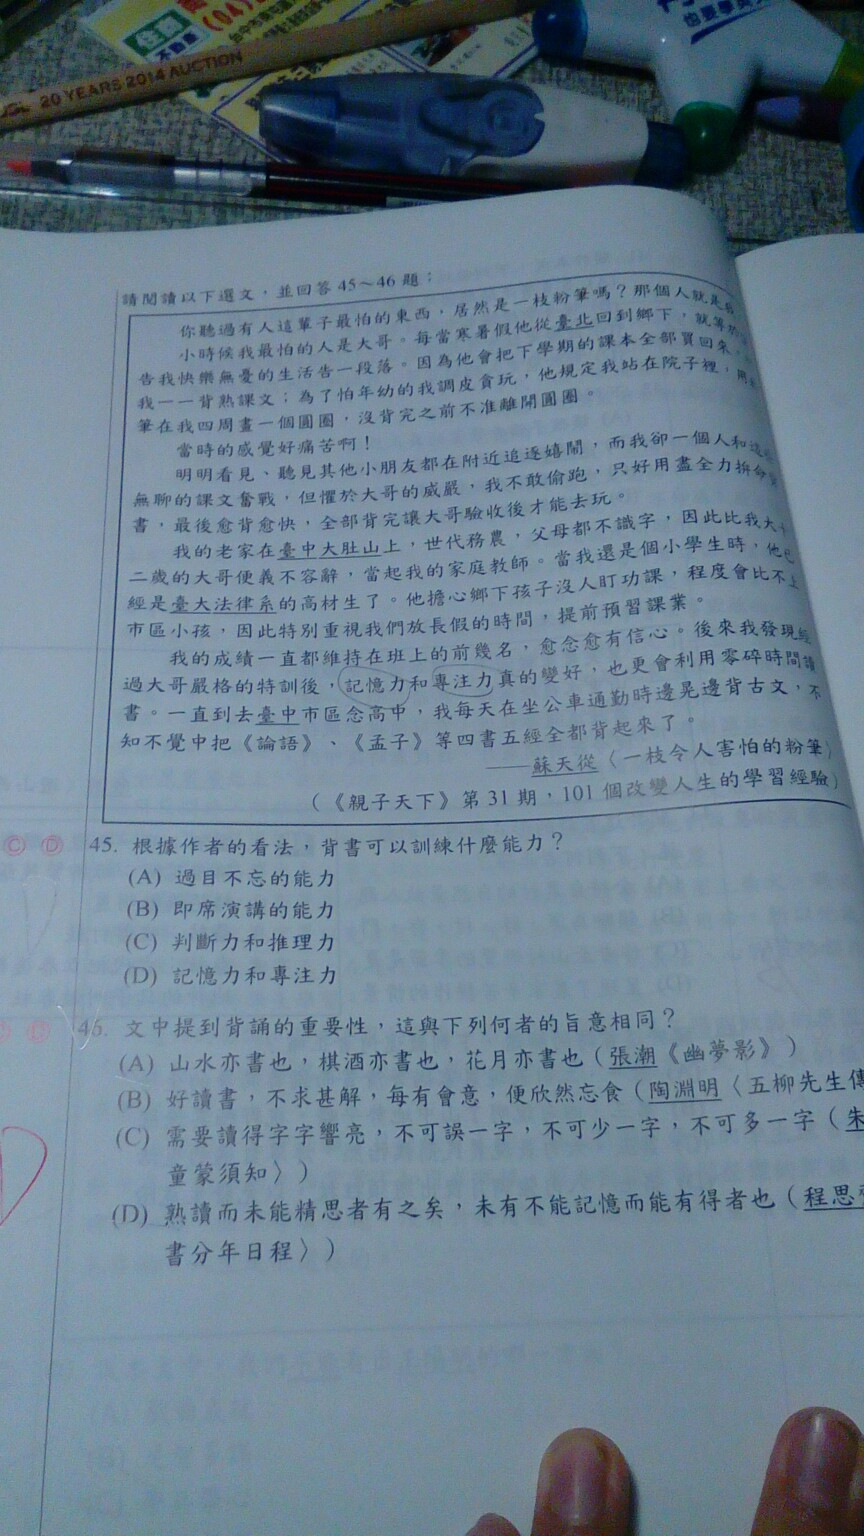 住商
不動產
(04)
也要學
20 YEARS 2014 AUCTION
請閱讀以下選文，並回答45～46題：
你聽過有人這輩子最怕的東西，居然是一枝粉筆嗎？那個人就是
小時候我最怕的人是大哥。每當寒暑假他從臺北回到鄉下，就等於
告我快樂無憂的生活告一段落。因為他會把下學期的課本全部買回來，
我一一背熟課文；為了怕年幼的我調皮貪玩，他規定我站在院子裡，用
筆在我四周畫一個圓圈，沒背完之前不准離開圓圈。
當時的感覺好痛苦啊！
明明看見、聽見其他小朋友都在附近追逐嬉鬧，而我卻一個人和這
無聊的課文奮戰，但懼於大哥的威嚴，我不敢偷跑，只好用盡全力拚命
書，最後愈背愈快，全部背完讓大哥驗收後才能去玩。
我的老家在臺中大肚山上，世代務農，父母都不識字，因此比我大十
二歲的大哥便義不容辭，當起我的家庭教師。當我還是個小學生時，他已
經是臺大法律系的高材生了。他擔心鄉下孩子沒人盯功課，程度會比不上
市區小孩，因此特別重視我們放長假的時間，提前預習課業。
我的成績一直都維持在班上的前幾名，愈念愈有信心。後來我發現經
過大哥嚴格的特訓後，記憶力和專注力真的變好，也更會利用零碎時間讀
書。一直到去臺中市區念高中，我每天在坐公車通勤時邊晃邊背古文，不
知不覺中把《論語》、《孟子》等四書五經全都背起來了。
——蘇天從〈一枝令人害怕的粉筆〉
（《親子天下》第31期，101個改變人生的學習經驗）
Ⓒ Ⓓ 45. 根據作者的看法，背書可以訓練什麼能力？
(A) 過目不忘的能力
(B) 即席演講的能力
(C) 判斷力和推理力
(D) 記憶力和專注力
46. 文中提到背誦的重要性，這與下列何者的旨意相同？
(A) 山水亦書也，棋酒亦書也，花月亦書也（張潮《幽夢影》）
(B) 好讀書，不求甚解，每有會意，便欣然忘食（陶淵明〈五柳先生傳
(C) 需要讀得字字響亮，不可誤一字，不可少一字，不可多一字（朱
童蒙須知〉）
(D) 熟讀而未能精思者有之矣，未有不能記憶而能有得者也（程思
書分年日程〉）